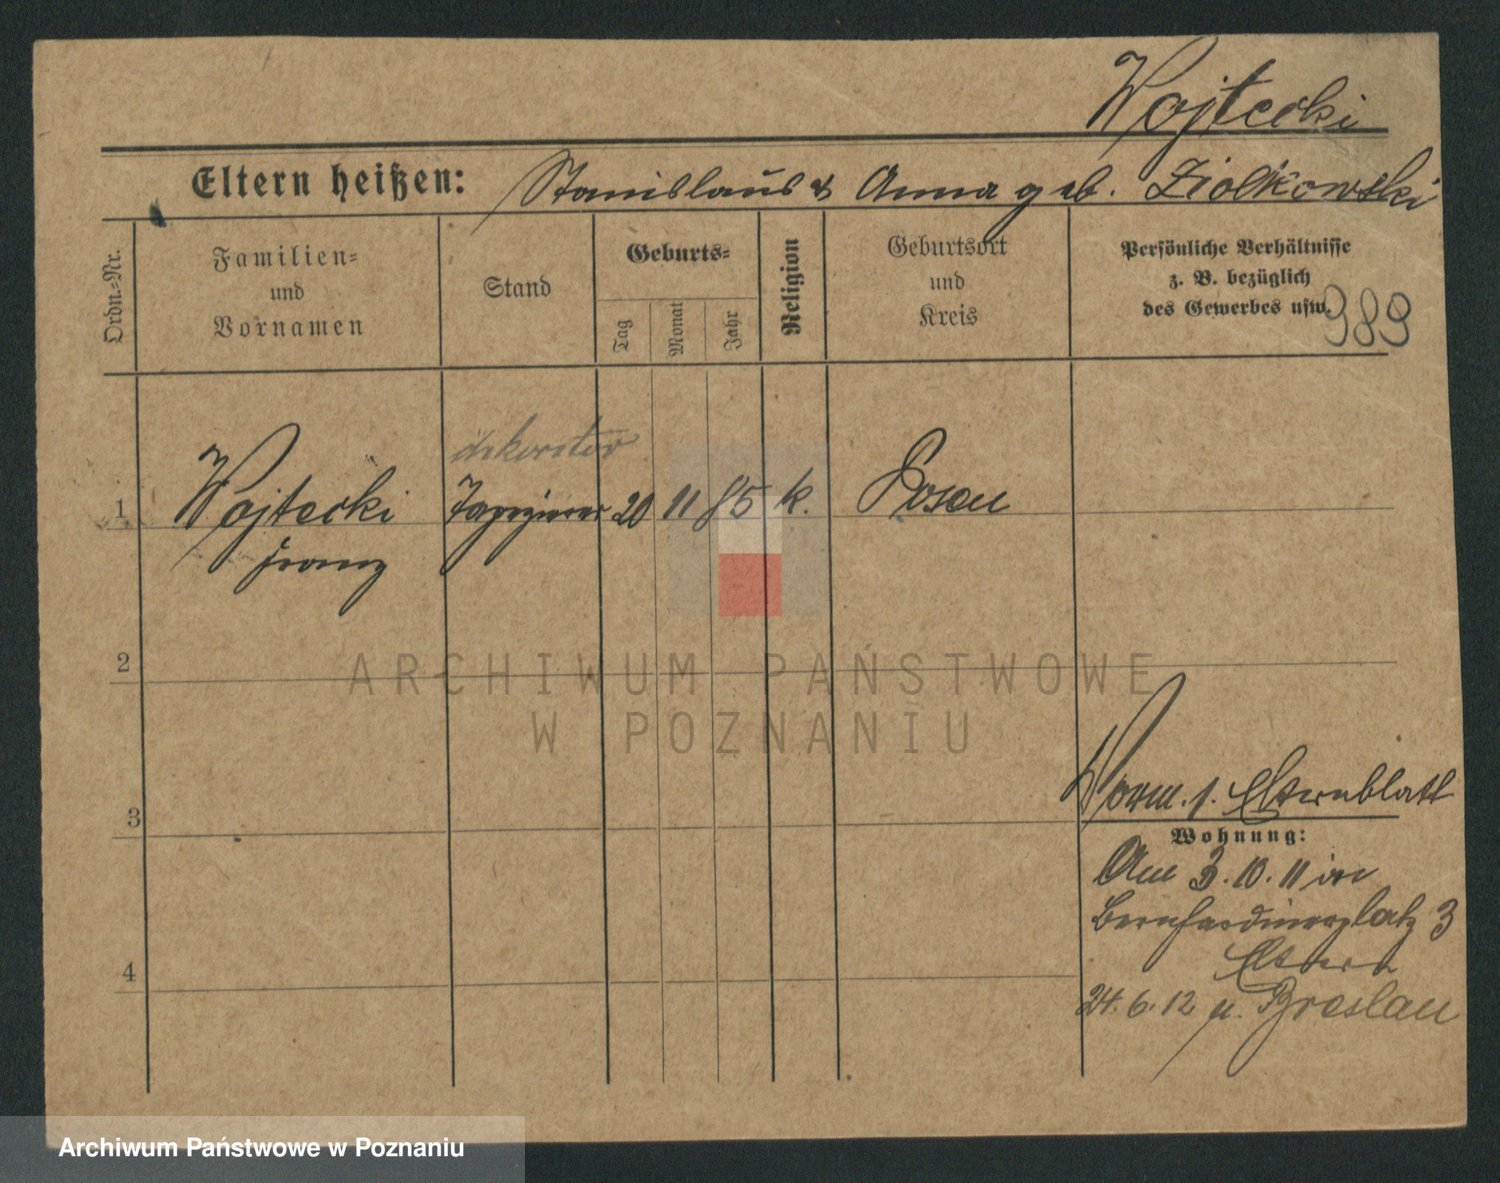 Wojtecki
Eltern heißen: Stanislaus & Anna geb. Ziolkowski
Ordn.-Nr.
Familien-
und
Vornamen
Stand
Geburts-
Tag
Monat
Jahr
Religion
Geburtsort
und
Kreis
Persönliche Verhältnisse
z. B. bezüglich
des Gewerbes usw.
389
dekorator
1 Wojtecki Tapezierer 20 11 85 k. Posen
Franz
2
3
4
Vorm. s. Elternblatt
Wohnung:
Am 3.10.11 in
Bernhardinerplatz 3
Eltern
24.6.12 n. Breslau
ARCHIWUM PAŃSTWOWE
W POZNANIU
Archiwum Państwowe w Poznaniu